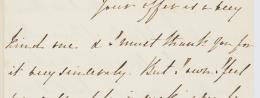 Your offer is a very
kind one & I must thank you for
it very sincerely. But I own I feel